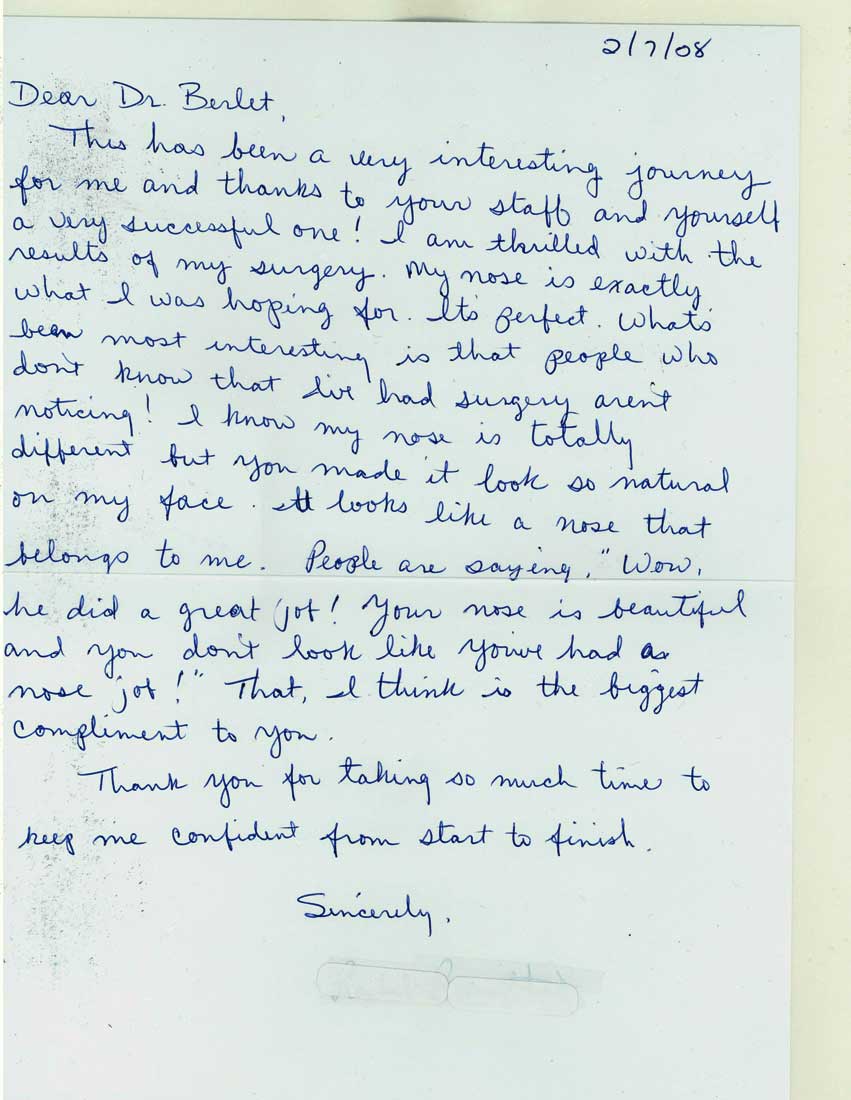 2/7/08
Dear Dr. Berlet,
This has been a very interesting journey
for me and thanks to your staff and yourself
a very successful one! I am thrilled with the
results of my surgery. My nose is exactly
what I was hoping for. It's perfect. What's
been most interesting is that people who
don't know that I've had surgery aren't
noticing! I know my nose is totally
different but you made it look so natural
on my face. It looks like a nose that
belongs to me. People are saying, "Wow,
he did a great job! Your nose is beautiful
and you don't look like you've had a
nose job!" That, I think is the biggest
compliment to you.
Thank you for taking so much time to
keep me confident from start to finish.
Sincerely,